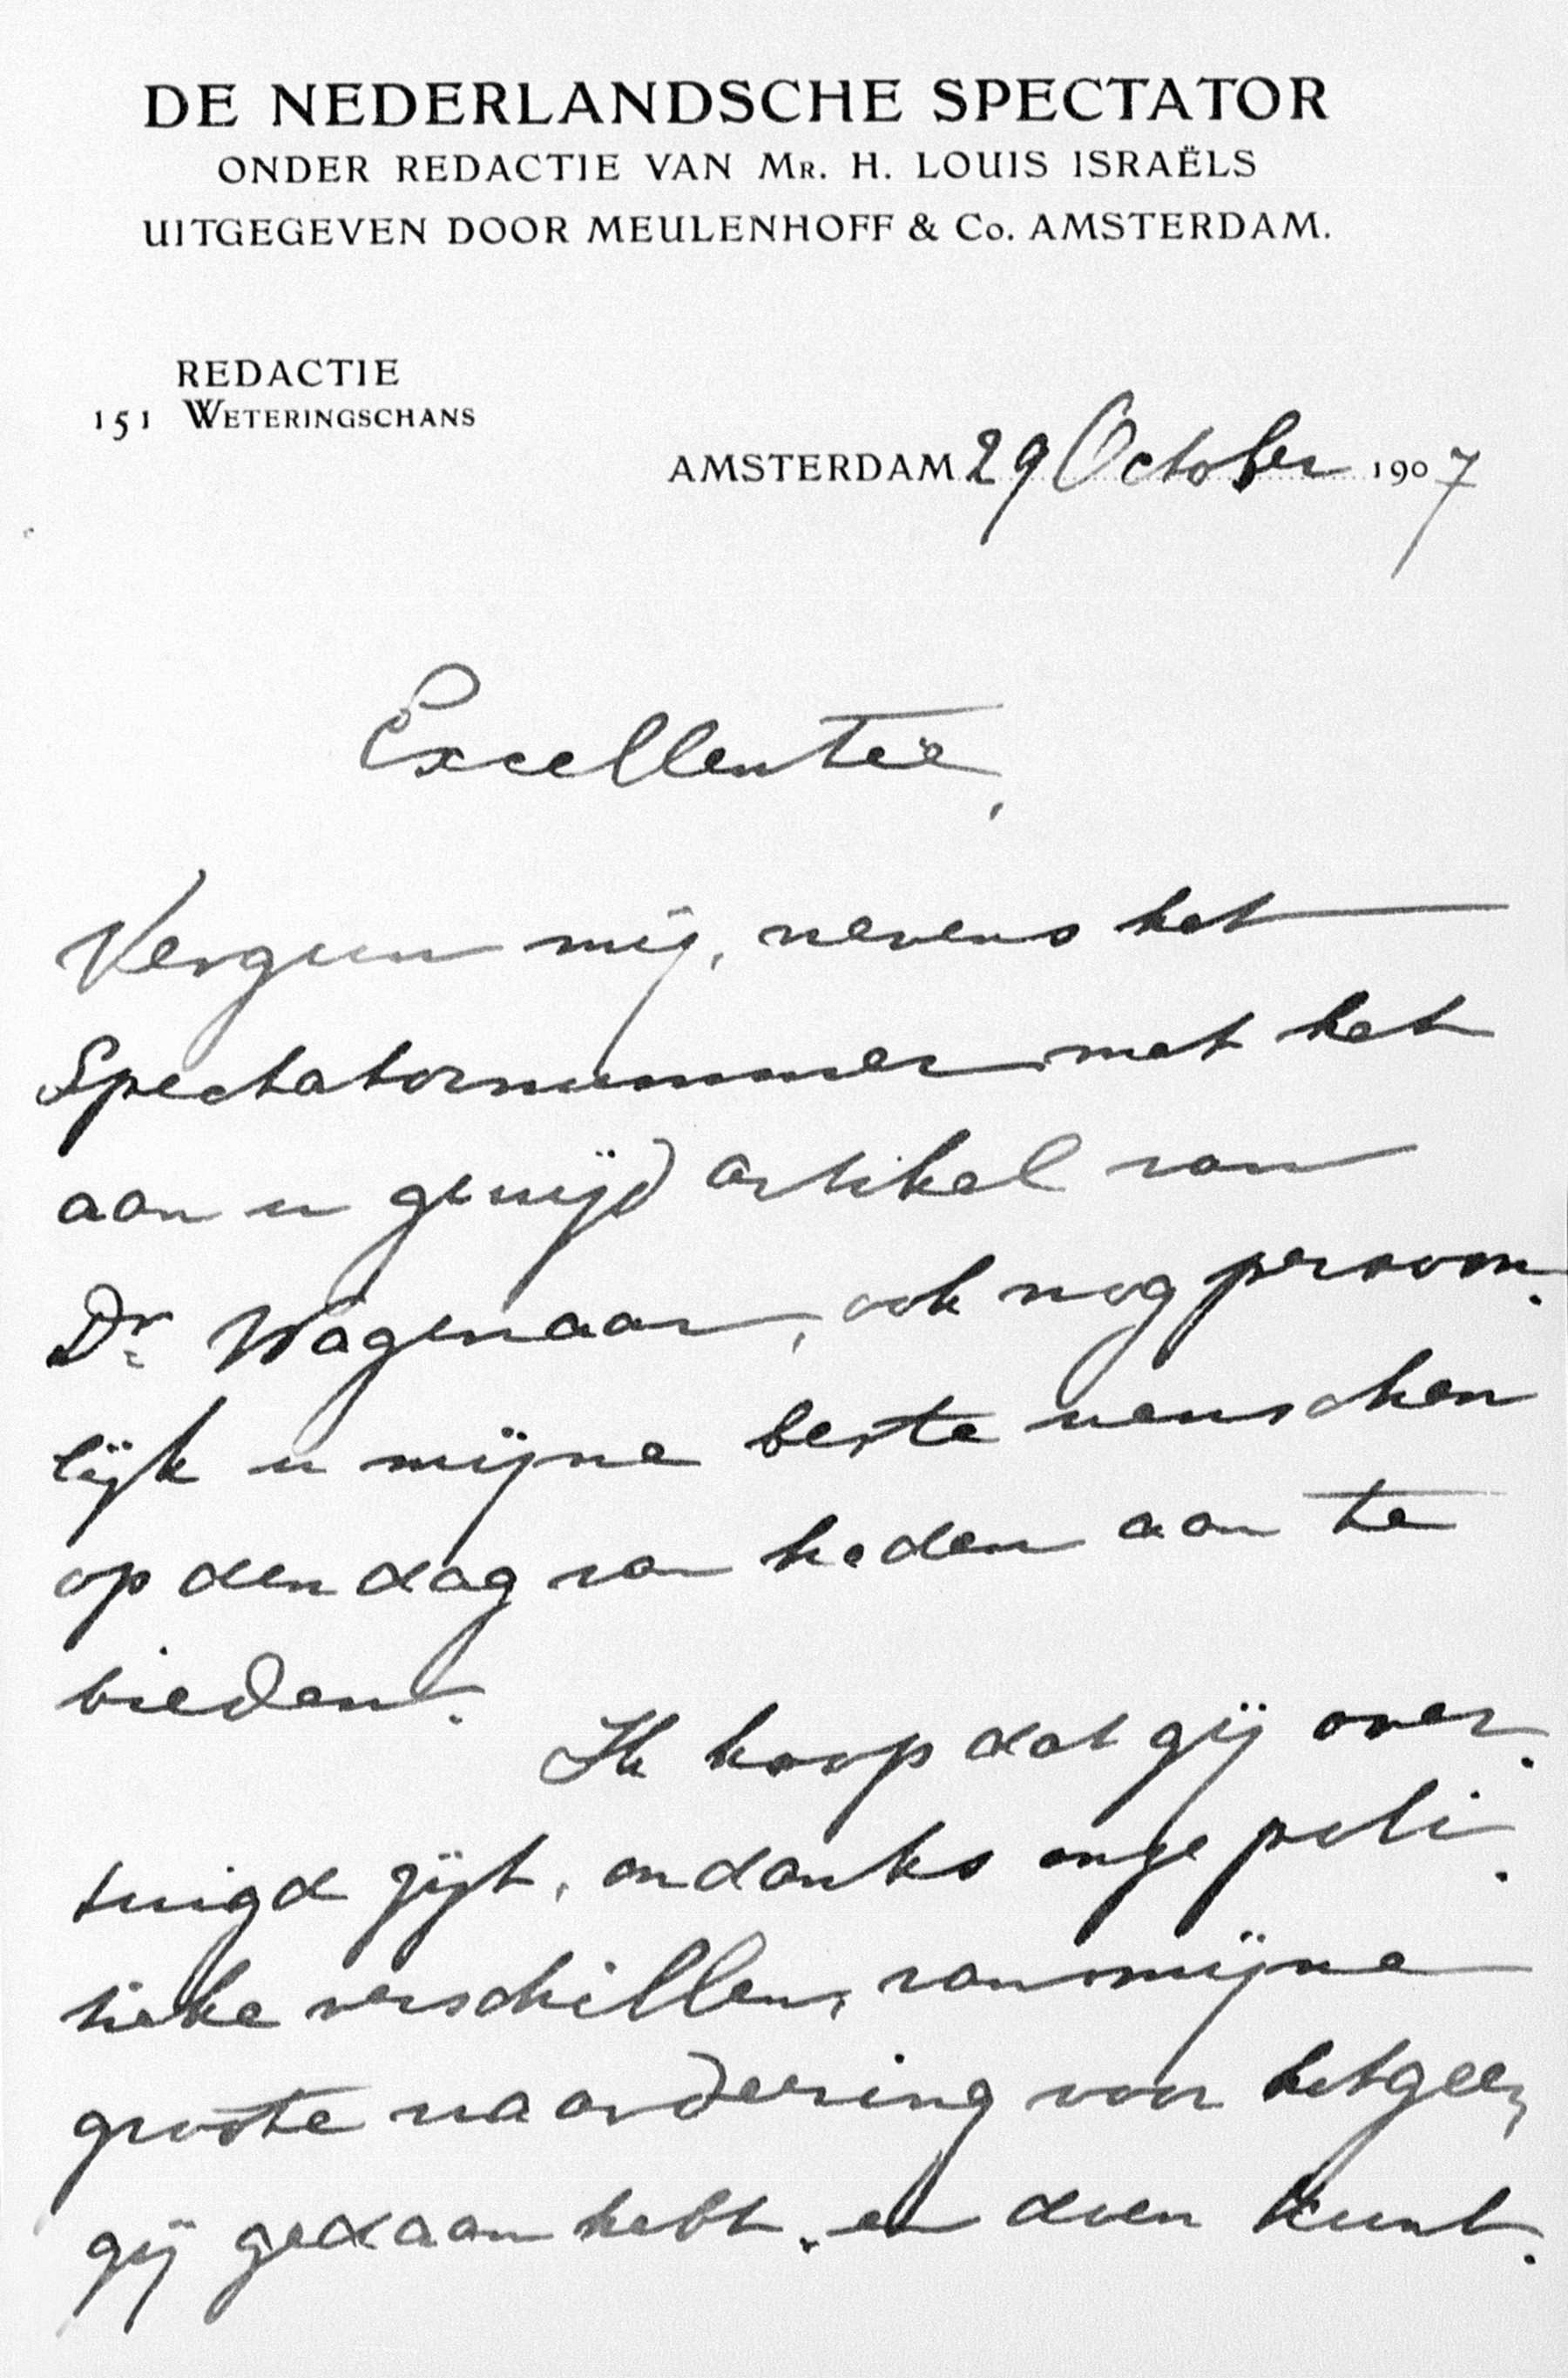 DE NEDERLANDSCHE SPECTATOR
ONDER REDACTIE VAN MR. H. LOUIS ISRAËLS
UITGEGEVEN DOOR MEULENHOFF & Co. AMSTERDAM.
REDACTIE
151 WETERINGSCHANS
AMSTERDAM 29 October 1907
Excellentie,
Vergun mij, nevens het
Spectatornummer met het
aan u gewijd artikel van
Dr Wagenaar, ook nog persoon-
lijk u mijne beste wenschen
op den dag van heden aan te
bieden.
Ik hoop dat gij over-
tuigd zijt, ondanks onze poli-
tieke verschillen, van mijne
groote waardeering voor hetgeen
gij gedaan hebt en doen kunt.